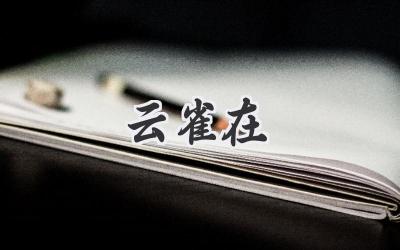 云雀在